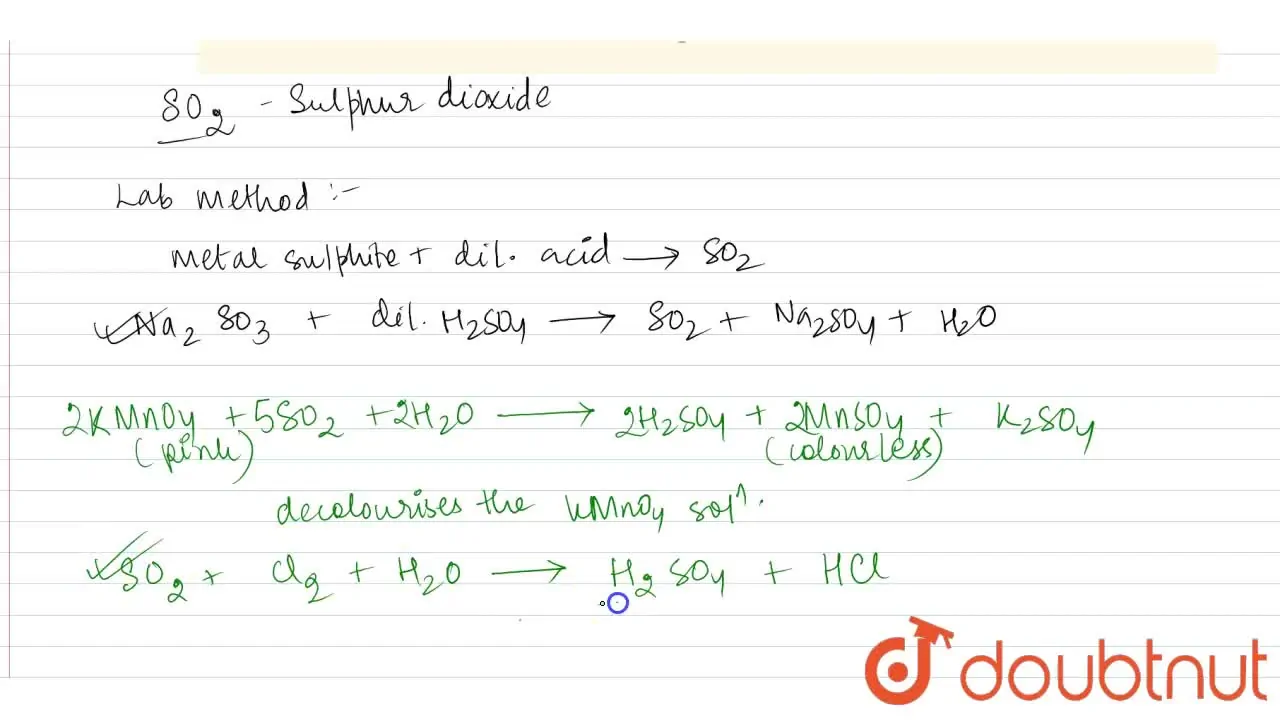 SO2 - Sulphur dioxide
Lab method :-
metal sulphite + dil. acid → SO2
Na2 SO3 + dil. H2SO4 → SO2 + Na2SO4 + H2O
2KMnO4 + 5SO2 + 2H2O → 2H2SO4 + 2MnSO4 + K2SO4
(pink) (colourless)
decolourises the KMnO4 solⁿ.
SO2 + Cl2 + H2O → H2SO4 + HCl
doubtnut